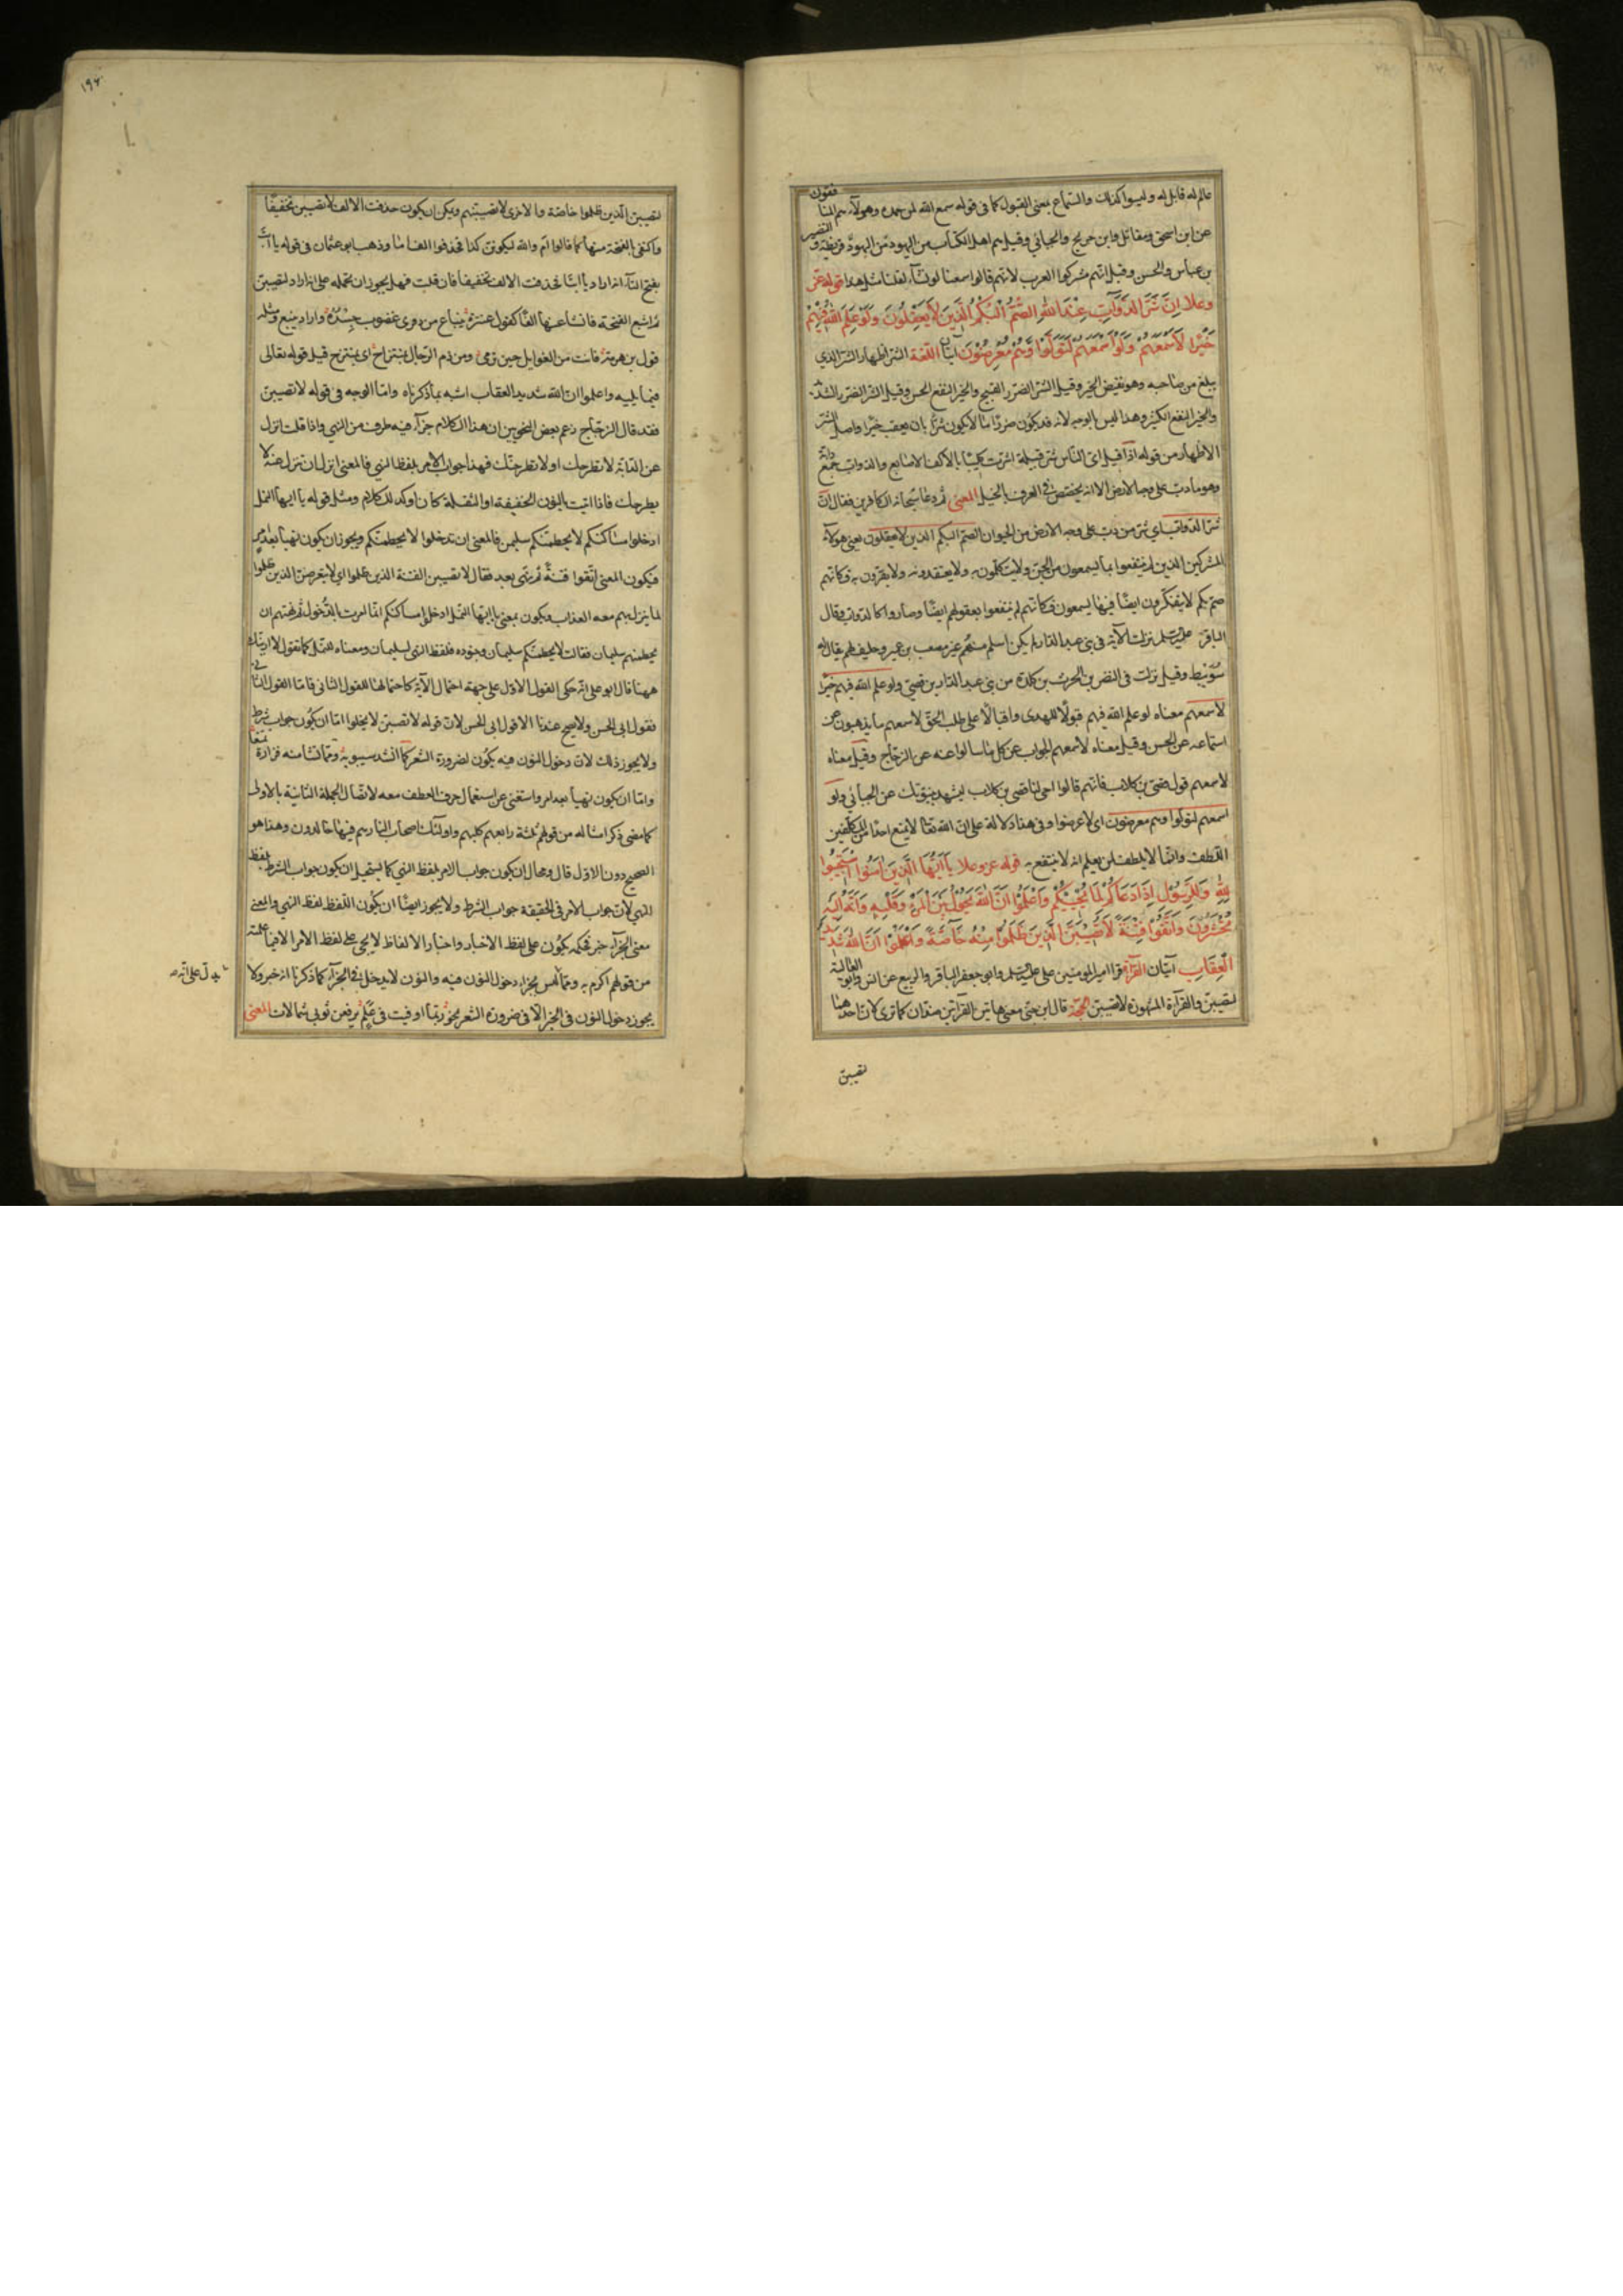 عالم له قابل له وليسوا كذلك والسماع بمعنى القبول كما في قوله سمع الله لمن حمده وهؤلاء هم المنافقون
عن ابن اسحق ومقاتل وابن جريج والجبائي وقيل هم اهل الكتاب من اليهود من اليهود قريظة والنضير
بن عباس والحسن وقيل انهم مشركوا العرب لانهم قالوا سمعنا لو نشآء لقلنا مثل هذا قوله عز
وعلا اِنَّ شَرَّ الدَّوَآبِّ عِنْدَ اللهِ الصُّمُّ الْبُكْمُ الَّذِينَ لَا يَعْقِلُونَ وَلَوْ عَلِمَ اللهُ فِيهِمْ
خَيْرًا لَاَسْمَعَهُمْ وَلَوْ اَسْمَعَهُمْ لَتَوَلَّوْا وَهُمْ مُعْرِضُونَ آيتان اللغة الشر اظهار السوء الذي
يبلغ من صاحبه وهو نقيض الخير وقيل الشر الضرر القبيح والخير النفع الحسن وقيل الشر الضرر الشديد
والخير النفع الكثير وهذا ليس بالوجه لانه قد يكون ضررا ما لا يكون شرا بان يعقب خيرا واصل الشر
الاظهار من قوله اذا قيل اي الناس شر قبيلة اشرت كليبا بالاكف الاصابع والدواب جمع دابة
وهو ما دب على وجه الارض الا انه يختص في العرف بالخيل المعنى ثم ذم سبحانه الكافرين فقال ان
شر الدواب اي شر من دب على وجه الارض من الحيوان الصم البكم الذين لا يعقلون يعني هؤلآء
المشركين الذين لم ينتفعوا بما يسمعون من الحق ولا يتكلمون به ولا يعتقدونه ولا يقرون به فكانهم
صم بكم لا يتفكرون ايضا فيما يسمعون فكانهم لم ينتفعوا بعقولهم ايضا وصاروا كالدواب وقال
الباقر عليه السلم نزلت الآية في بني عبد الدار لم يكن اسلم منهم غير مصعب بن عمير وحليف لهم يقال له
سويبط وقيل نزلت في النضر بن الحرث بن كلدة من بني عبد الدار بن قصي ولو علم الله فيهم خيرا
لاسمعهم معناه لو علم الله فيهم قبولا للهدى واقبالا على طلب الحق لاسمعهم ما يذهبون عن
استماعه عن الحسن وقيل معناه لاسمعهم الجواب عن كل ما سالوا عنه عن الزجاج وقيل معناه
لاسمعهم قول قصي بن كلاب فانهم قالوا احي لنا قصي بن كلاب ليشهد بنبوتك عن الجبائي ولو
اسمعهم لتولوا وهم معرضون اي لاعرضوا وفي هذا دلالة على ان الله تعالى لا يمنع احدا من المكلفين
اللطف وانما لا يلطف لمن يعلم انه لا ينتفع به قوله عز وعلا يَا اَيُّهَا الَّذِينَ اٰمَنُوا اسْتَجِيبُوا
لِلّٰهِ وَلِلرَّسُولِ اِذَا دَعَاكُمْ لِمَا يُحْيِيكُمْ وَاعْلَمُوا اَنَّ اللهَ يَحُولُ بَيْنَ الْمَرْءِ وَقَلْبِهِ وَاَنَّهُ اِلَيْهِ
تُحْشَرُونَ وَاتَّقُوا فِتْنَةً لَا تُصِيبَنَّ الَّذِينَ ظَلَمُوا مِنْكُمْ خَاصَّةً وَاعْلَمُوا اَنَّ اللهَ شَدِيدُ
الْعِقَابِ آيتان القرآءة قرا امير المومنين علي عليه السلم وابو جعفر الباقر والربيع عن انس وابو العالية
لتصيبن والقرآءة المشهورة لا تصيبن الحجة قال ابن جني معنى هاتين القرآءتين ضدان كما ترى لان احدهما
تصيبن
١٩٢
لتصيبن الذين ظلموا خاصة والاخرى لا تصيبنهم ويمكن ان يكون حذفت الالف لا تصيبن تخفيفا
واكتفى بالفتحة منها كما قالوا ام والله ليكونن كذا فحذفوا الف اما وذهب ابو عثمان في قوله يا ابت
بفتح التآء انه اراد يا ابتا فحذفت الالف تخفيفا فان قلت فهل يجوز ان تحمله على انه اراد لتصيبن
ثم اشبع الفتحة فانشا عنها الفا كقول عنترة ينباع من ذفرى غضوب جسرة واراد ينبع ومثله
قول بن هرمة فانت من الغوايل حين ترمى ومن ذم الرجال بمنتزاح اى بمنتزح قيل قوله تعالى
فيما يليه واعلموا ان الله شديد العقاب اشبه بما ذكرناه واما الوجه في قوله لا تصيبن
فقد قال الزجاج زعم بعض النحويين ان هذا الكلام جزآء فيه طرف من النهي واذا قلت انزل
عن الدابة لا تطرحك او لا تطرحنك فهذا جواب الامر بلفظ النهي فالمعنى ان تنزل عنها لا
يطرحك فاذا اتيت بالنون الخفيفة او الثقيلة كان اوكد للكلام ومثله قوله يا ايها النمل
ادخلوا مساكنكم لا يحطمنكم سليمن فالمعنى ان تدخلوا لا يحطمنكم ويجوز ان يكون نهيا بعد امر
فيكون المعنى اتقوا فتنة ثم نهى بعد فقال لا تصيبن الفتنة الذين ظلموا اي لا يتعرض الذين ظلموا
لما ينزل بهم معه العذاب ويكون بمعنى يا ايها النمل ادخلوا مساكنكم انما امرت بالدخول ثم نهتهم ان
يحطمنهم سليمان فقالت لا يحطمنكم سليمان وجنوده فلفظ النهي لسليمان ومعناه للنمل كما تقول لا ارينك
ههنا قال ابو علي انه حكى القول الاول على جهة احتمال الآية كاحتمالها للقول الثاني فاما القول الثاني
فقول ابي الحسن ولا يصح عندنا الا قول ابي الحسن لان قوله لا تصيبن لا يخلوا اما ان يكون جواب شرط
ولا يجوز ذلك لان دخول النون فيه يكون لضرورة الشعر كما انشد سيبويه ومهما تشا منه فزارة تمنعا
واما ان يكون نهيا بعد امر واستغنى عن استعمال حرف العطف معه لاتصال الجملة الثانية بالاولى
كما مضى ذكر امثاله من قولهم ثلثة رابعهم كلبهم واولئك اصحاب النار هم فيها خالدون وهذا هو
الصحيح دون الاول قال ومحال ان يكون جواب الامر بلفظ النهي كما يستحيل ان يكون جواب الشرط بلفظ
النهي لان جواب الامر في الحقيقة جواب الشرط ولا يجوز ايضا ان يكون اللفظ لفظ النهي والمعنى
معنى الجزآء خبر فحكمه يكون على لفظ الاخبار واخبار الالفاظ لا يجى على لفظ الامر الا فيما علمته
من قولهم اكرم به ومما ليس بجزاء دخول النون فيه والنون لا يدخل في الجزآء كما ذكرنا انه خبر ولا
يجوز دخول النون في الخبر الا في ضرورة الشعر نحو ربما اوفيت في علم ترفعن ثوبي شمالات المعنى